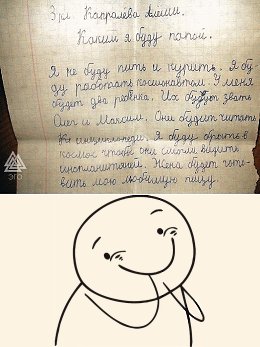 3 кл Карралева Алёши.
Каким я буду папой.
Я не буду пить и курить. Я бу-
ду работать космонавтом. У меня
будет два ребёнка. Их будут звать
Олег и Максим. Они будут читать
Я буду брать в
космос чтобы они смогли видеть
инопланитяней. Жена будет гото-
вить мою любимую пищу.
ЭГО